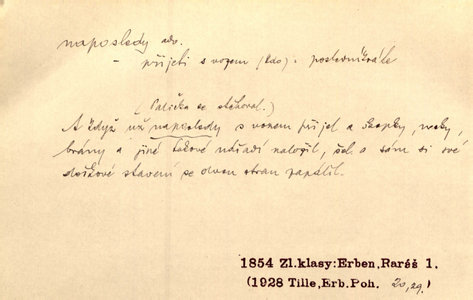 naposledy adv.
– přijeti s vozem (kdo) = posledníkráte
(Palička se stěhoval.)
A když už naposledy s vozem přijel a škopky, necky,
brány a jiné takové nářadí naložil, šel a sám si své
doškové stavení se dvou stran zapálil.
1854 Zl.klasy:Erben,Raráš 1.
(1928 Tille,Erb.Poh. 20,29.)